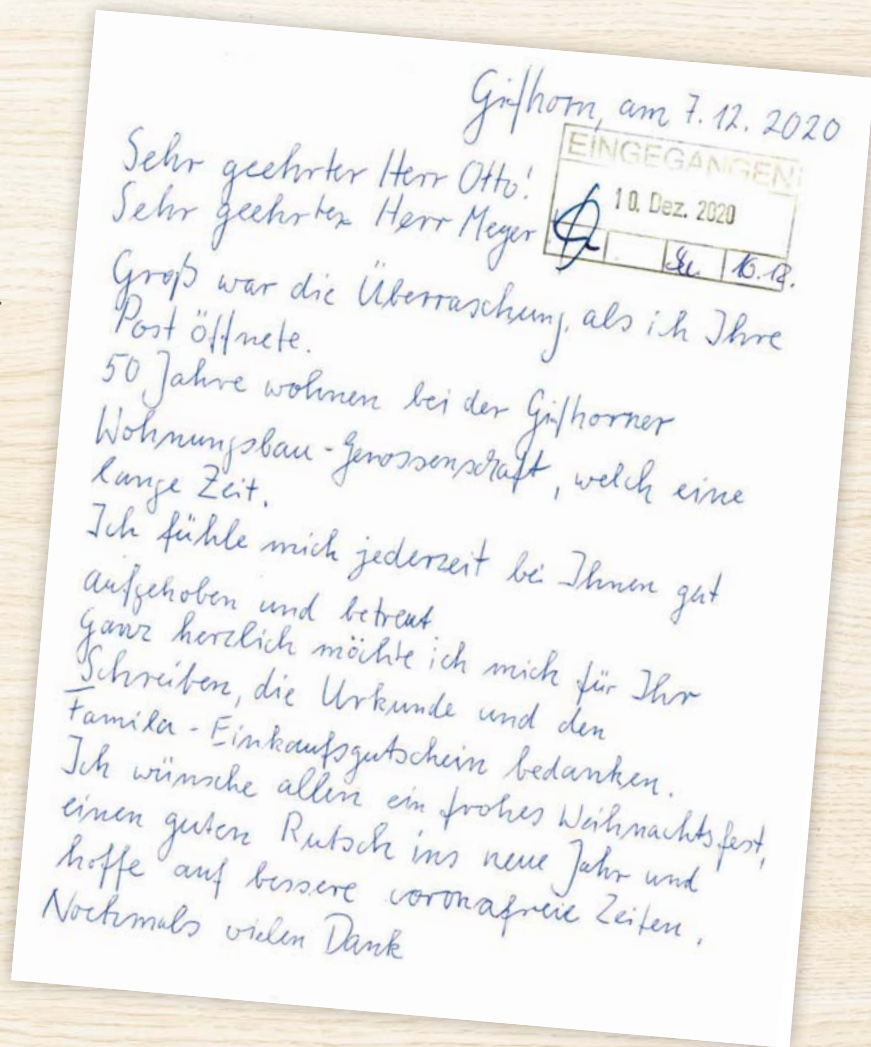 Gifhorn, am 7.12.2020
EINGEGANGEN
10. Dez. 2020
10.12.
Sehr geehrter Herr Otto!
Sehr geehrter Herr Meyer
Groß war die Überraschung, als ich Ihre
Post öffnete.
50 Jahre wohnen bei der Gifhorner
Wohnungsbau-Genossenschaft, welch eine
lange Zeit.
Ich fühle mich jederzeit bei Ihnen gut
aufgehoben und betreut
Ganz herzlich möchte ich mich für Ihr
Schreiben, die Urkunde und den
Famila-Einkaufsgutschein bedanken.
Ich wünsche allen ein frohes Weihnachtsfest,
einen guten Rutsch ins neue Jahr und
hoffe auf bessere coronafreie Zeiten.
Nochmals vielen Dank